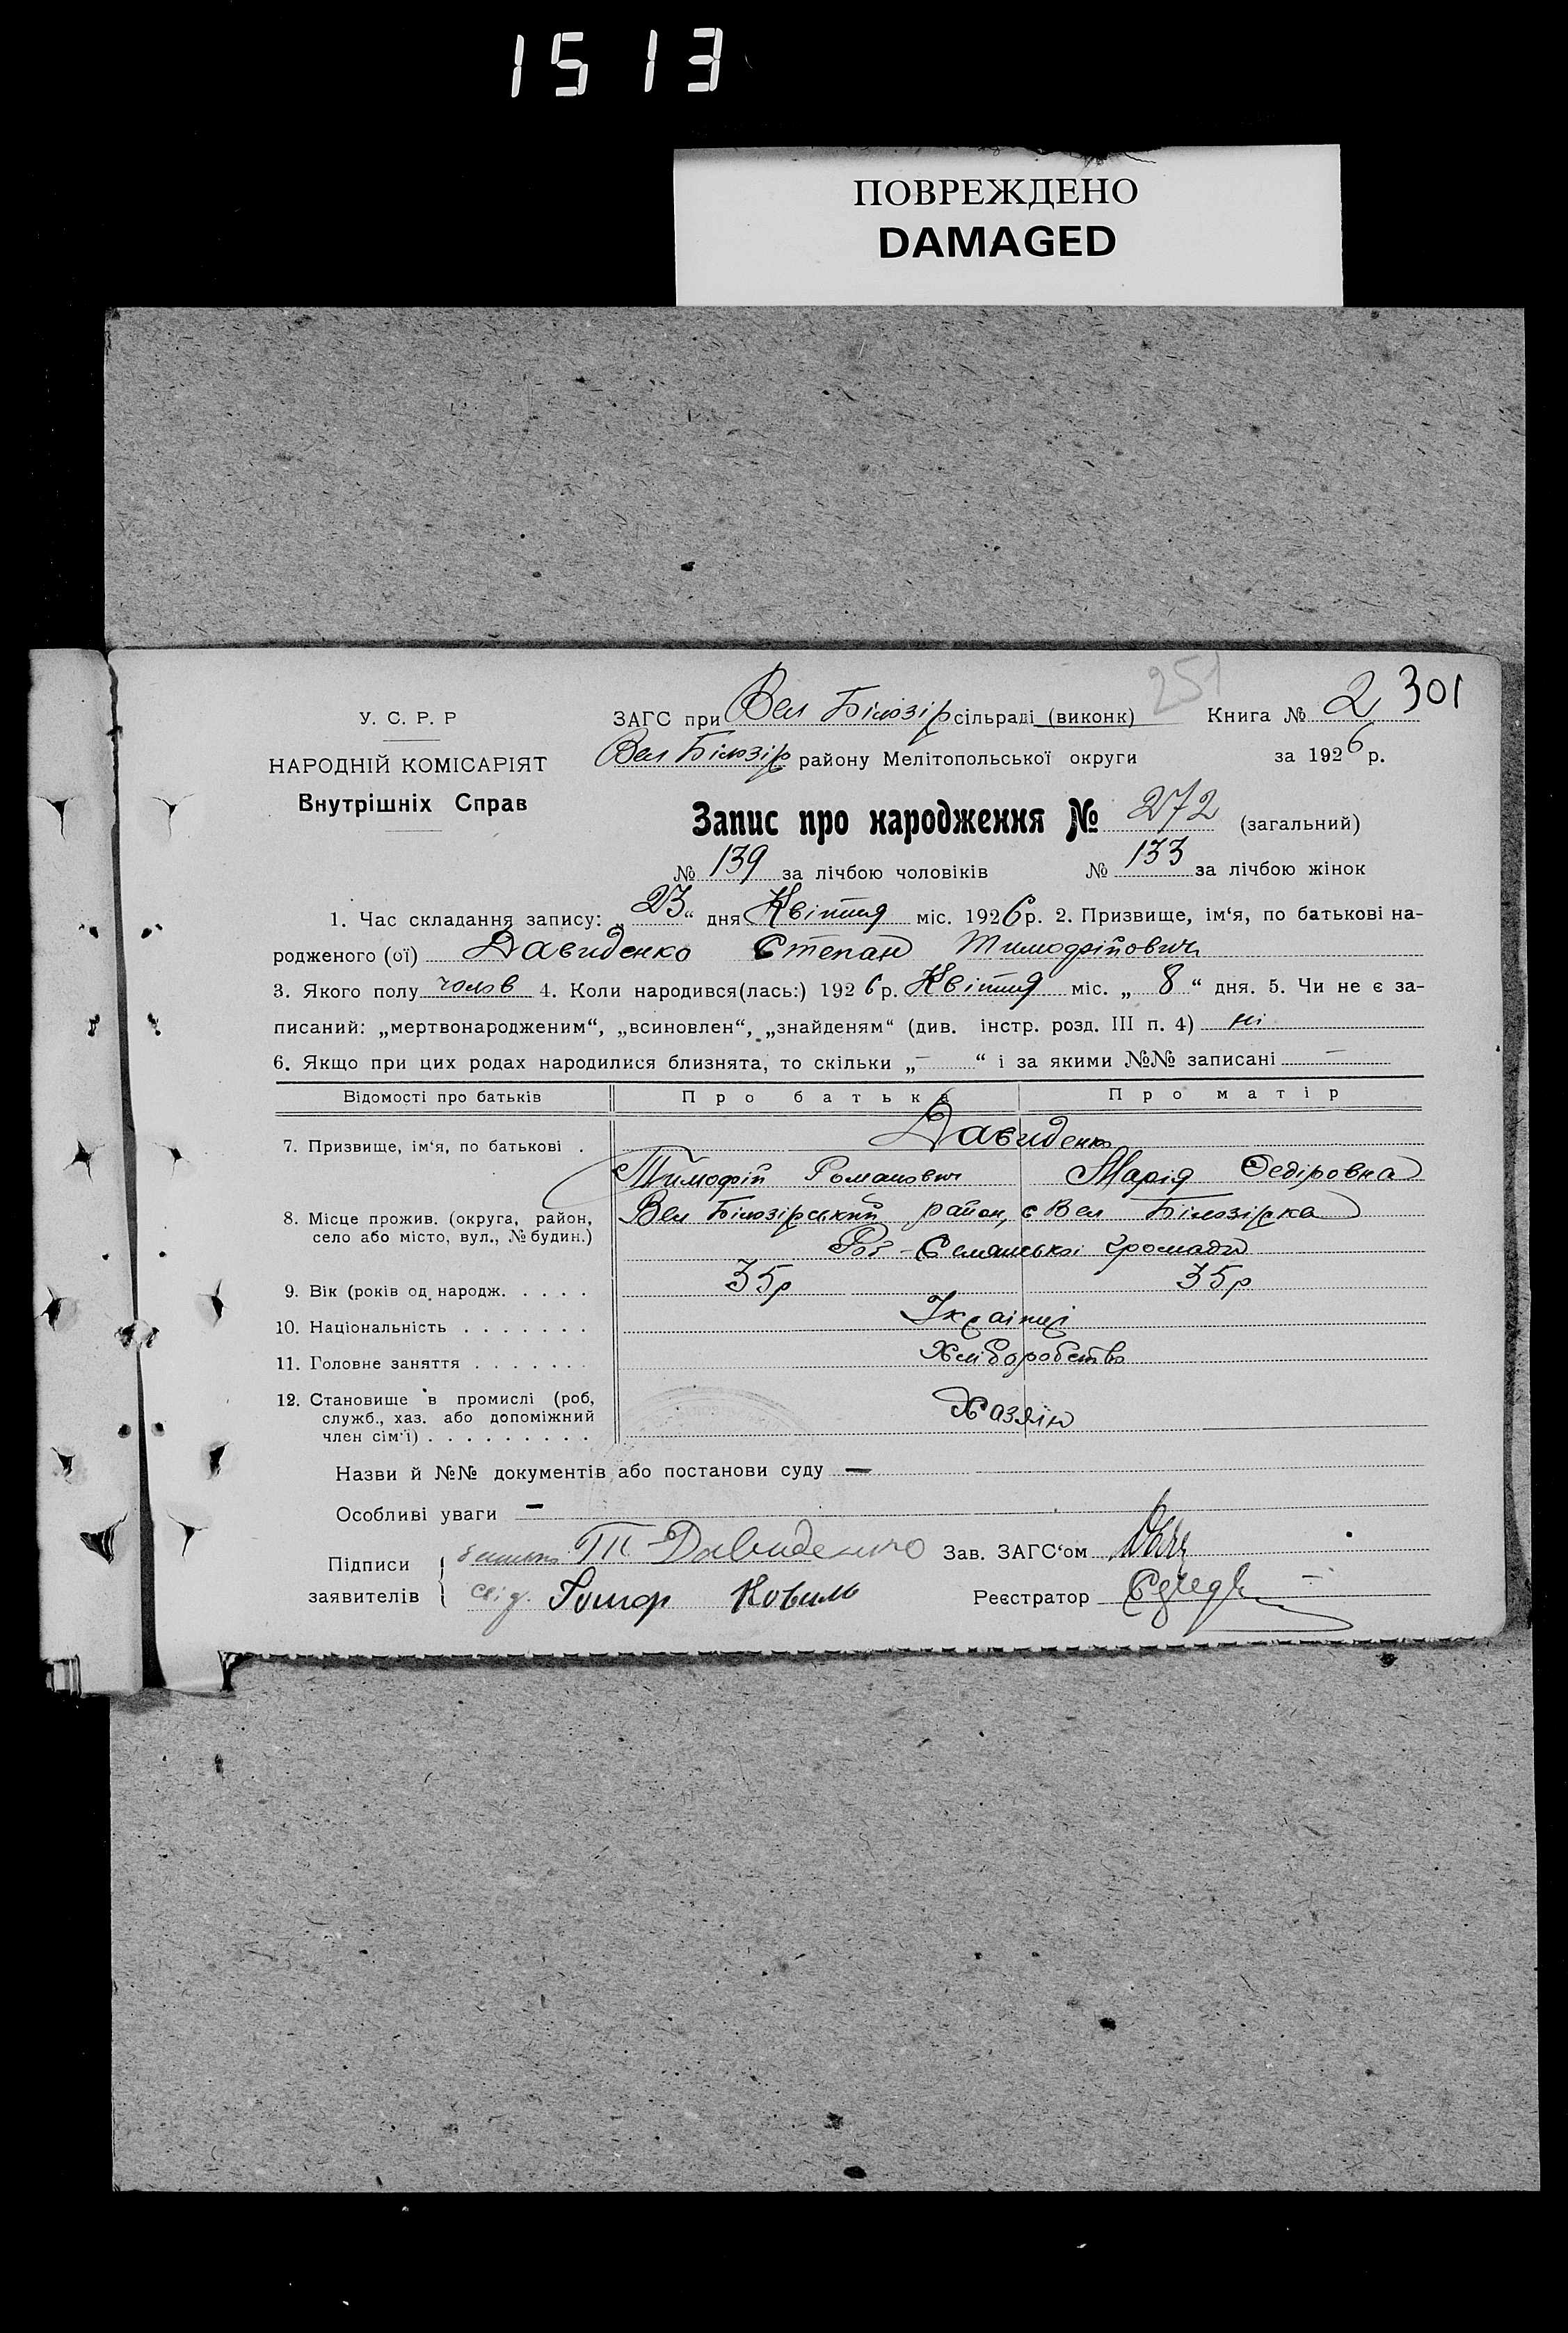 1513
ПОВРЕЖДЕНО
DAMAGED
251
У. С. Р. Р
НАРОДНІЙ КОМІСАРІЯТ
Внутрішніх Справ
ЗАГС при Вел Білозір сільраді (виконк) Книга № 2 301
Вел Білозір району Мелітопольської округи за 1926 р.
Запис про народження № 272 (загальний)
№ 139 за лічбою чоловіків № 133 за лічбою жінок
1. Час складання запису: „23“ дня Квітня міс. 1926 р. 2. Призвище, ім‘я, по батькові на-
родженого (ої) Давиденко Степан Тимофійович
3. Якого полу чолов 4. Коли народився(лась:) 1926 р. Квітня міс. „ 8 “ дня. 5. Чи не є за-
писаний: „мертвонародженим“, „всиновлен“, „знайденям“ (див. інстр. розд. III п. 4) ні
6. Якщо при цих родах народилися близнята, то скільки „ — “ і за якими №№ записані —
Відомості про батьків Про батька Про матір
7. Призвище, ім‘я, по батькові . Давиденко
Тимофій Романович Марія Федіровна
8. Місце прожив. (округа, район, село або місто, вул., № будин.) Вел Білозірський район, с Вел Білозірка
громади
9. Вік (років од народж. . . . . 35р 35р
10. Національність . . . . . . . Українці
11. Головне заняття . . . . . . . Хліборобство
12. Становище в промислі (роб,
служб., хаз. або допоміжний
член сім‘ї) . . . . . . . . . Хазяїн
Назви й №№ документів або постанови суду —
Особливі уваги —
Підписи
заявителів
батько Давиденко Зав. ЗАГС‘ом
свід. Реєстратор